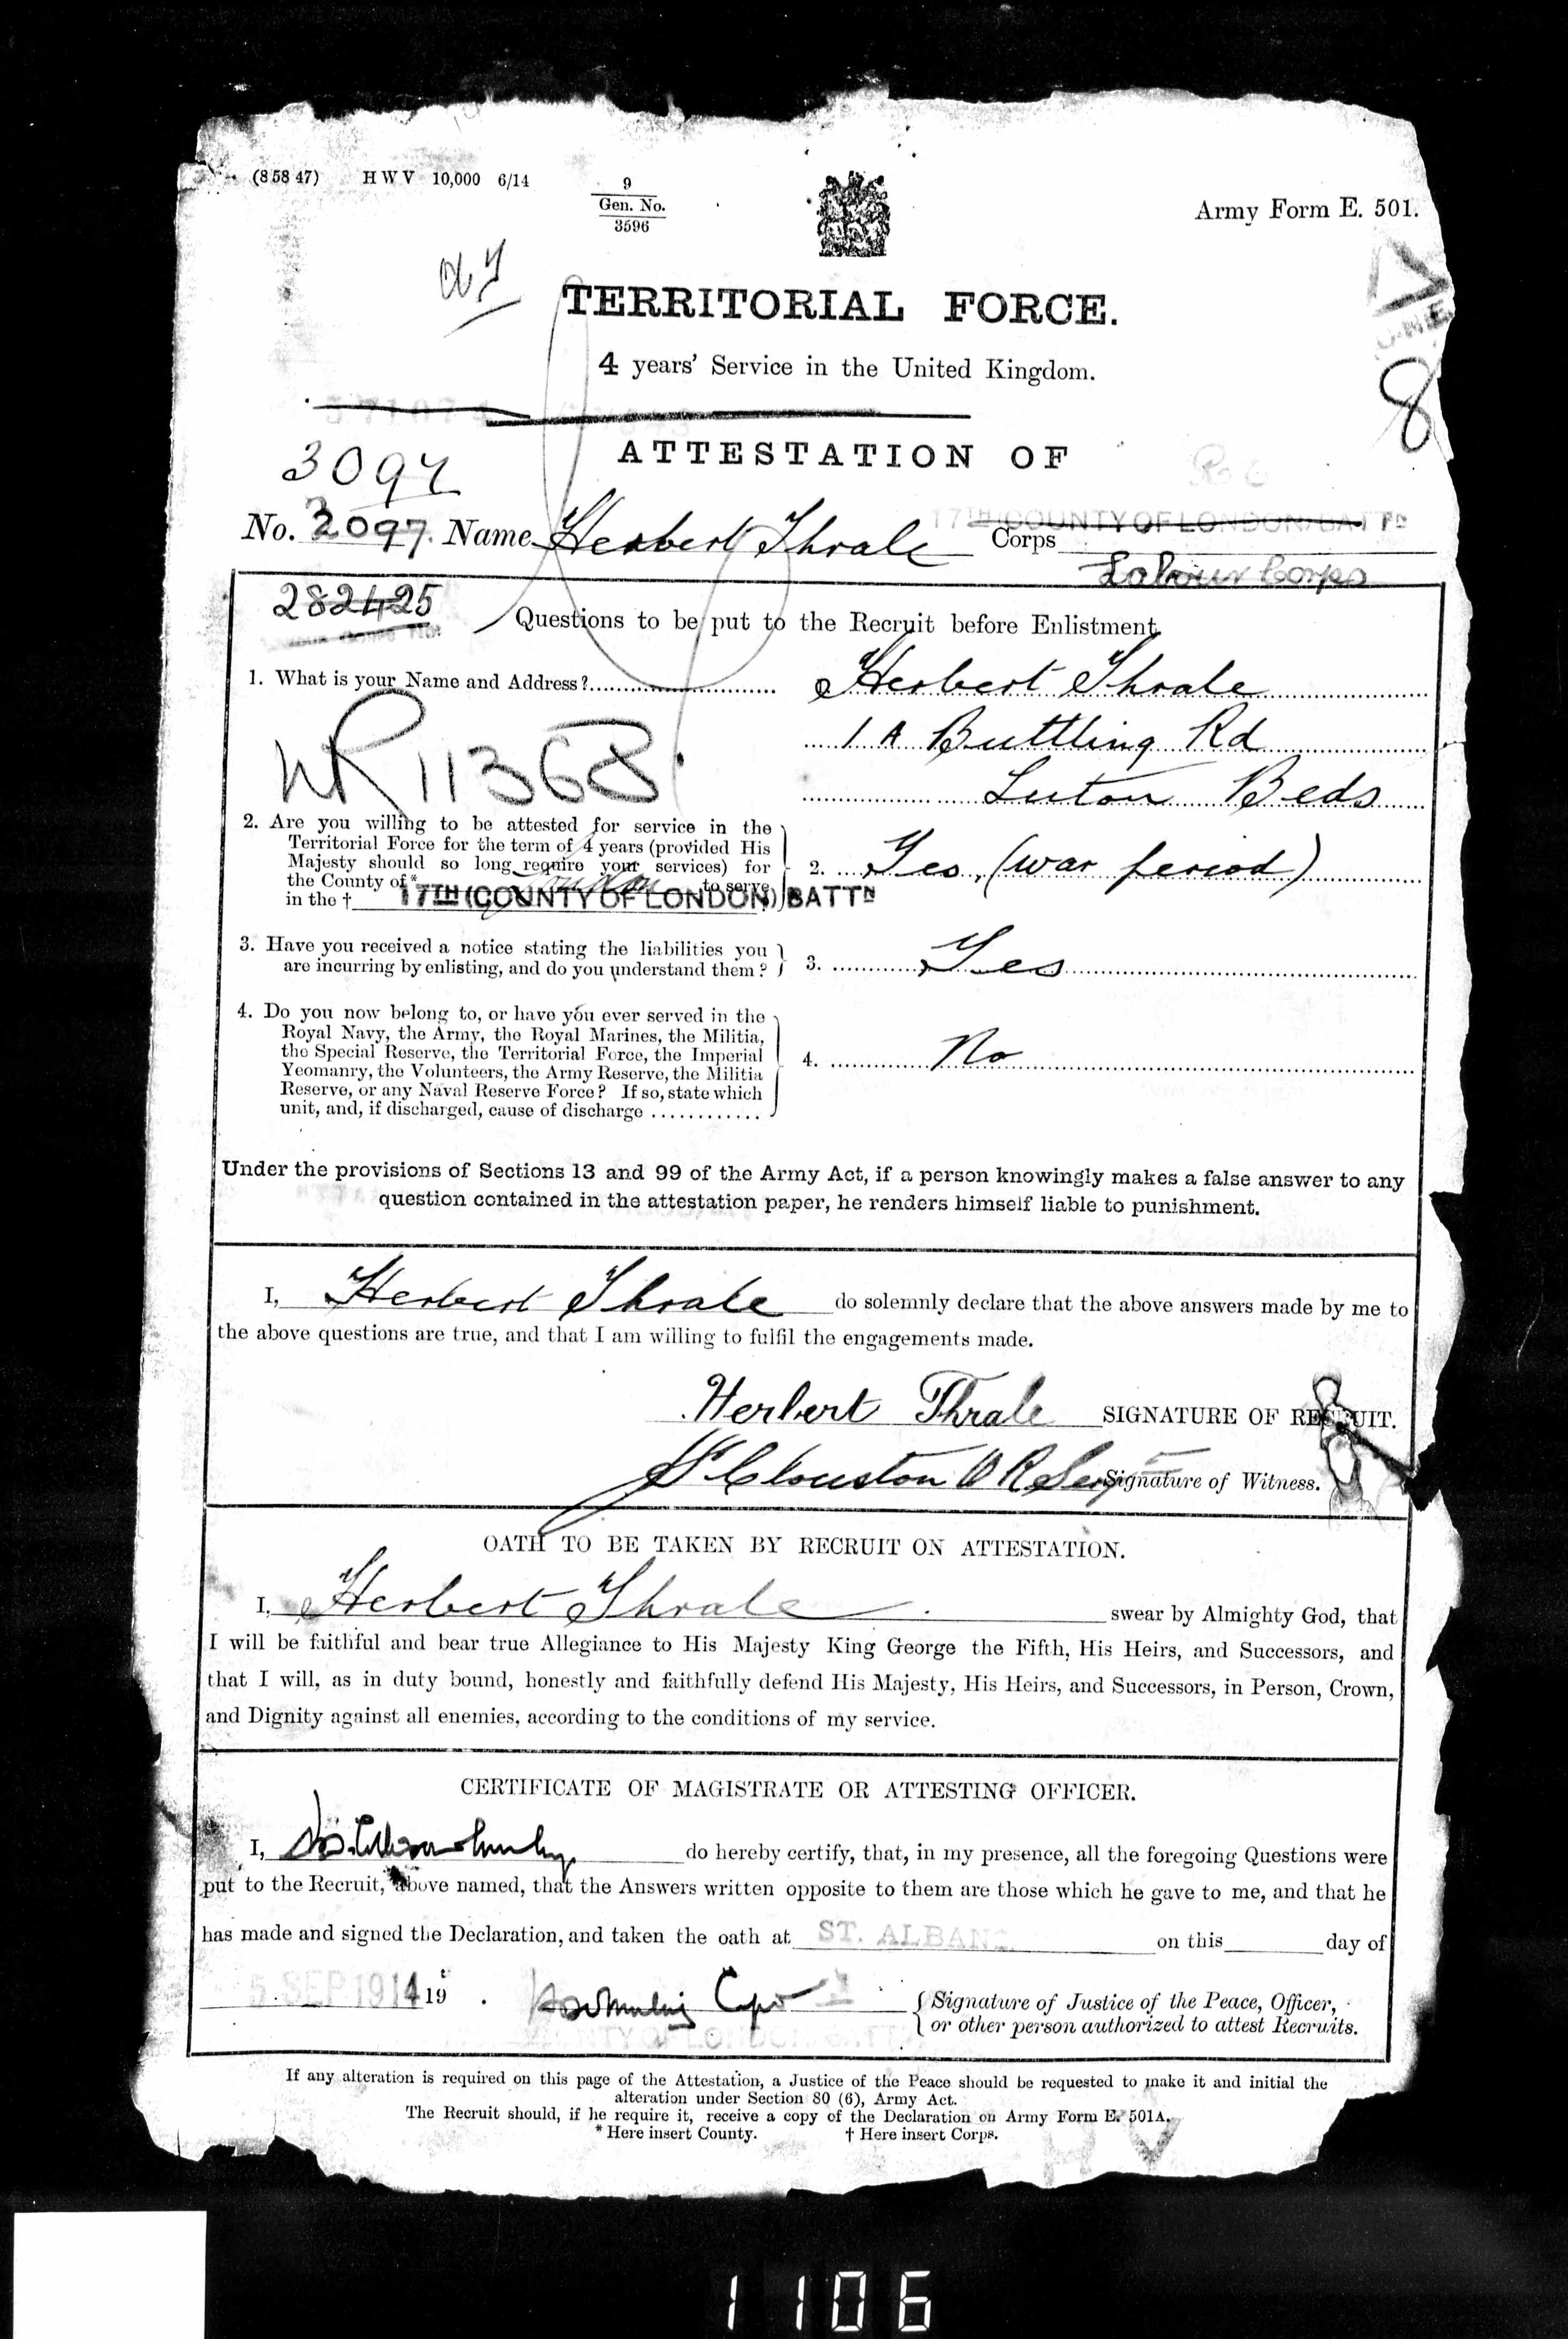 (8 58 47) H W V 10,000 6/14
9
Gen. No.
3596
Army Form E. 501.
TERRITORIAL FORCE.
4 years' Service in the United Kingdom.
8
ATTESTATION OF
3097
No. 3097. Name Herbert Thrale Corps 17TH (COUNTY OF LONDON) BATTN
Labour Corps
282425
Questions to be put to the Recruit before Enlistment.
1. What is your Name and Address? Herbert Thrale
1 A Buttling Rd
Luton Beds
WR 11368
2. Are you willing to be attested for service in the
Territorial Force for the term of 4 years (provided His
Majesty should so long require your services) for
the County of* London to serve
in the † 17TH (COUNTY OF LONDON) BATTN
2. Yes, (war period)
3. Have you received a notice stating the liabilities you
are incurring by enlisting, and do you understand them?
3. Yes
4. Do you now belong to, or have you ever served in the
Royal Navy, the Army, the Royal Marines, the Militia,
the Special Reserve, the Territorial Force, the Imperial
Yeomanry, the Volunteers, the Army Reserve, the Militia
Reserve, or any Naval Reserve Force? If so, state which
unit, and, if discharged, cause of discharge ............
4. No
Under the provisions of Sections 13 and 99 of the Army Act, if a person knowingly makes a false answer to any
question contained in the attestation paper, he renders himself liable to punishment.
I, Herbert Thrale do solemnly declare that the above answers made by me to
the above questions are true, and that I am willing to fulfil the engagements made.
Herbert Thrale SIGNATURE OF RECRUIT.
Clouston O R Serg Signature of Witness.
OATH TO BE TAKEN BY RECRUIT ON ATTESTATION.
I, Herbert Thrale swear by Almighty God, that
I will be faithful and bear true Allegiance to His Majesty King George the Fifth, His Heirs, and Successors, and
that I will, as in duty bound, honestly and faithfully defend His Majesty, His Heirs, and Successors, in Person, Crown,
and Dignity against all enemies, according to the conditions of my service.
CERTIFICATE OF MAGISTRATE OR ATTESTING OFFICER.
I, do hereby certify, that, in my presence, all the foregoing Questions were
put to the Recruit, above named, that the Answers written opposite to them are those which he gave to me, and that he
has made and signed the Declaration, and taken the oath at ST. ALBANS on this day of
5 SEP 1914 19 .
Capt
Signature of Justice of the Peace, Officer,
or other person authorized to attest Recruits.
COUNTY OF LONDON BATT
If any alteration is required on this page of the Attestation, a Justice of the Peace should be requested to make it and initial the
alteration under Section 80 (6), Army Act.
The Recruit should, if he require it, receive a copy of the Declaration on Army Form E. 501A.
* Here insert County. † Here insert Corps.
1106